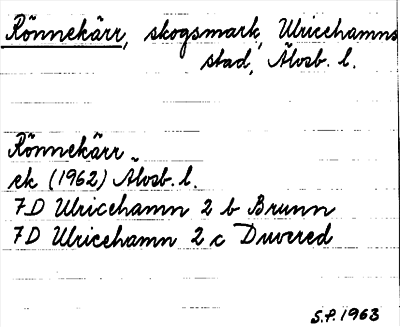 Rönnekärr, skogsmark, Ulricehamns
stad, Älvsb. l.
Rönnekärr
ek (1962) Älvsb. l.
7D Ulricehamn 2 b Brunn
7D Ulricehamn 2 c Duvered
S.P. 1963